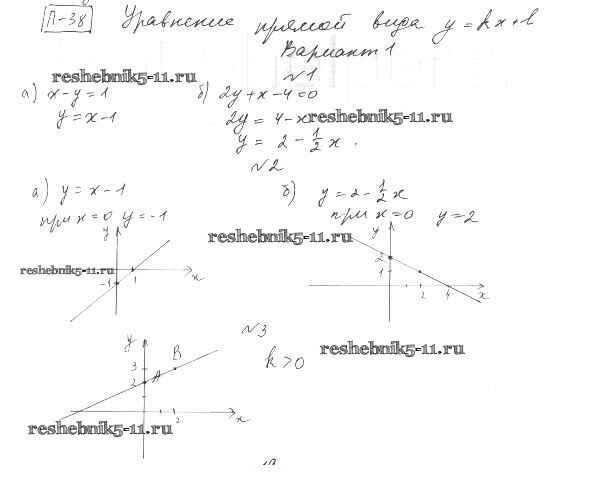 П-38 Уравнение прямой вида y = kx + l
Вариант 1
reshebnik5-11.ru
№1
а) x - y = 1 б) 2y + x - 4 = 0
y = x - 1 2y = 4 - x reshebnik5-11.ru
y = 2 - 1/2 x.
№2
а) y = x - 1 б) y = 2 - 1/2 x
при x = 0 y = -1 при x = 0 y = 2
reshebnik5-11.ru
y y
reshebnik5-11.ru
2
1
-1 1 x
2 4 x
№3
y B k > 0
reshebnik5-11.ru
3
2 A
2 x
reshebnik5-11.ru